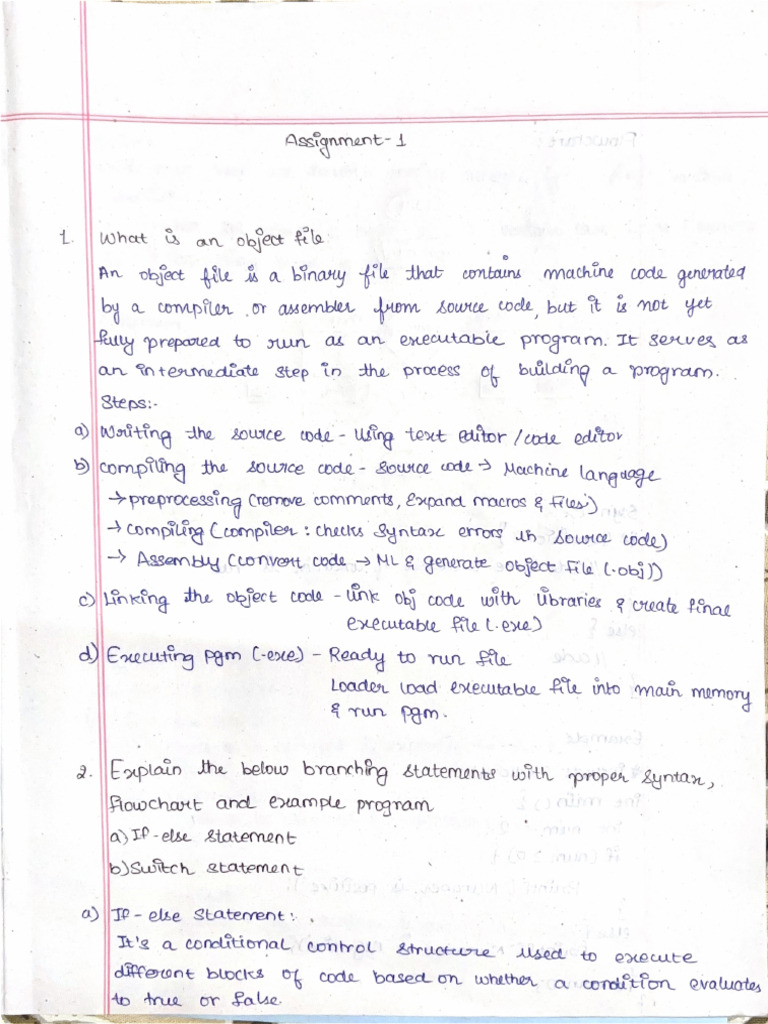 Assignment-1
1. What is an object file.
An object file is a binary file that contains machine code generated
by a compiler or assembler from source code, but it is not yet
fully prepared to run as an executable program. It serves as
an intermediate step in the process of building a program.
Steps:-
a) Writing the source code - Using text editor / code editor
b) Compiling the source code - Source code → Machine language
→ preprocessing (remove comments, Expand macros & files)
→ compiling (compiler : checks syntax errors in source code)
→ Assembly (convert code → ML & generate object file (.obj))
c) Linking the object code - Link obj code with libraries & create final
executable file (.exe)
d) Executing pgm (.exe) - Ready to run file
Loader load executable file into main memory
& run pgm.
2. Explain the below branching statements with proper syntax,
flowchart and example program
a) If-else statement
b) Switch statement
a) If-else statement:.
It's a conditional control structure used to execute
different blocks of code based on whether a condition evaluates
to true or false.